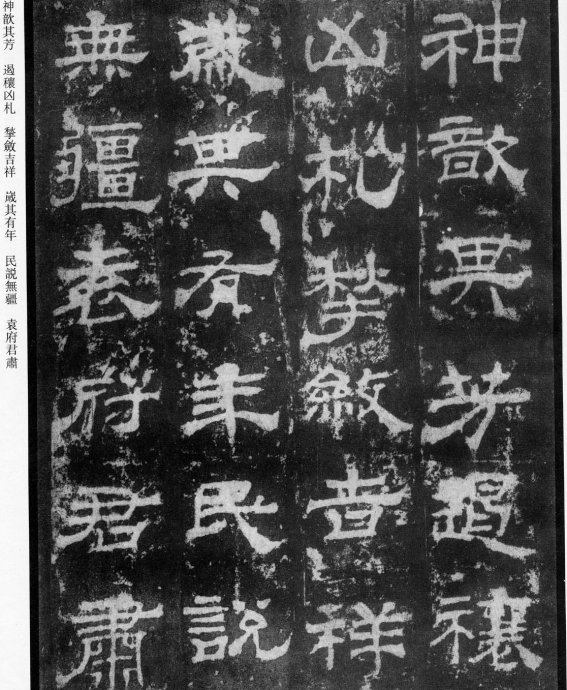 神歆其芳遏禳
凶札揫斂吉祥
歲其有年民説
無疆袁府君肅
神歆其芳 遏穰凶札 揫斂吉祥 歲其有年 民説無疆 袁府君肅